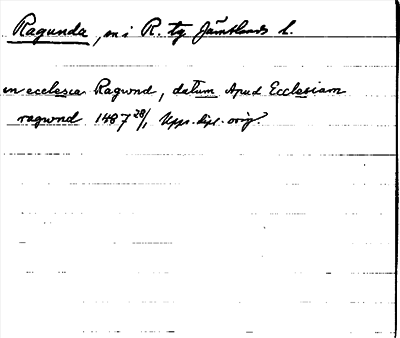 Ragunda, sn i R. tg Jämtlands l.
in ecclesia Ragwnd, datum Apud Ecclesiam
ragwnd 1487 28/1 Upps. dipl. orig.